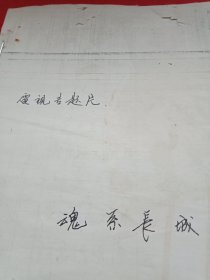 电视专题片
魂系長城